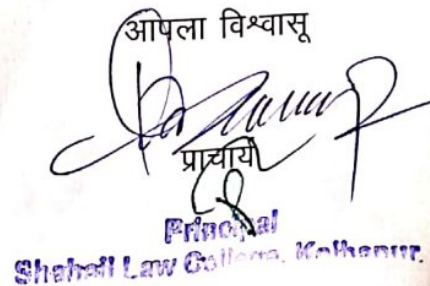 आपला विश्वासू
प्राचार्य
Principal
Shahaji Law College, Kolhapur.